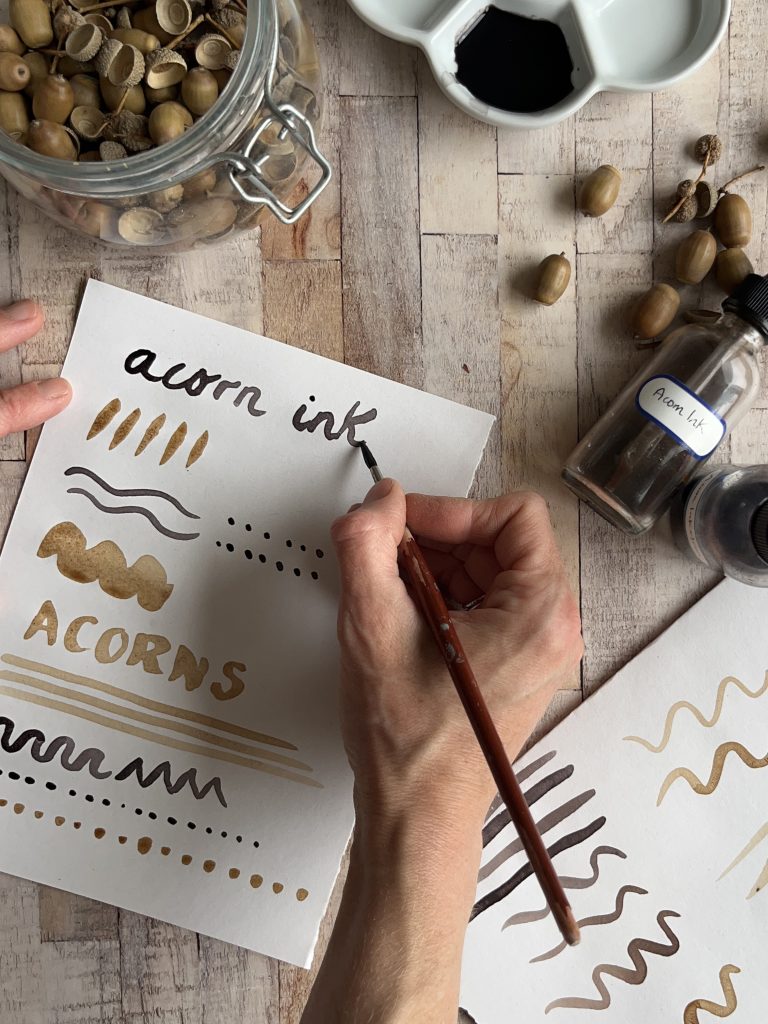 acorn ink
ACORNS
Acorn Ink